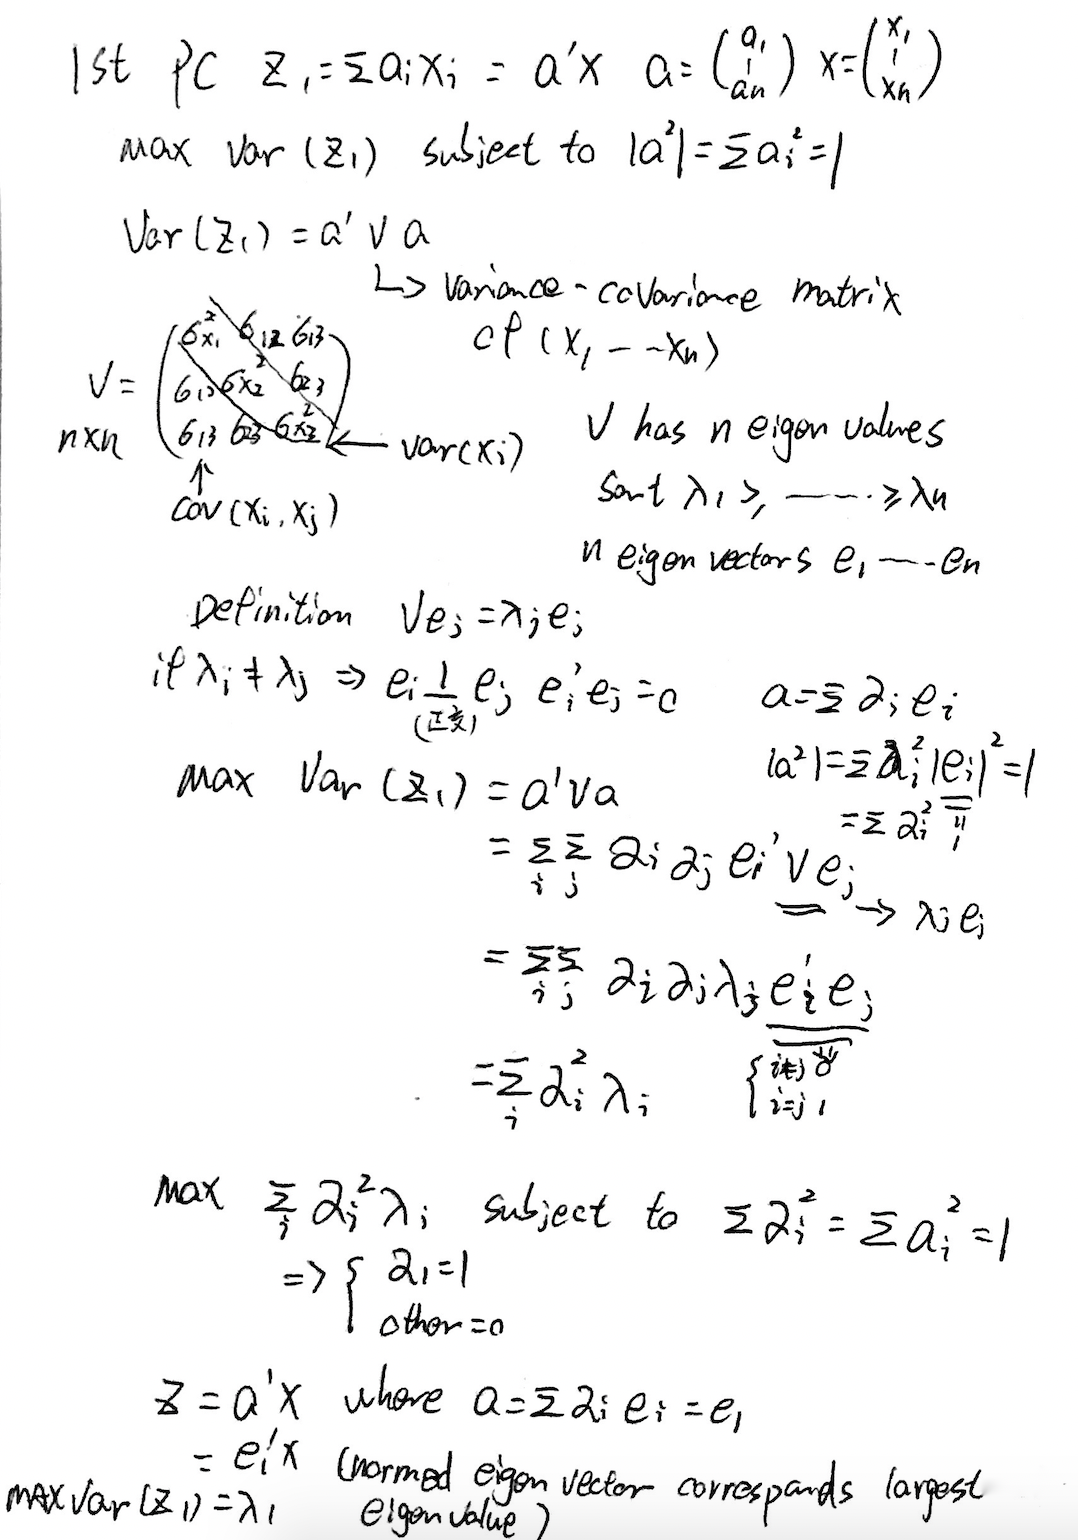 1st PC Z₁=Σaᵢxᵢ = a'x a=(a₁ | an) x=(x₁ | xn)
max Var (Z₁) subject to |a²|=Σaᵢ²=1
Var(Z₁) = a' V a
↳ variance-covariance matrix
of (x₁ --- xn)
V= (σ²x₁ σ₁₂ σ₁₃
σ₁₂ σx₂² σ₂₃
n×n σ₁₃ σ₂₃ σx₃²) ← var(xᵢ)
↑
cov(xᵢ, xⱼ)
V has n eigen values
Sort λ₁ ≥, ------ ≥ λn
n eigen vectors e₁ ---- en
Definition Veⱼ = λⱼeⱼ
if λᵢ ≠ λⱼ ⇒ eᵢ ⊥ eⱼ eᵢ'eⱼ = 0
(正交)
a=Σ∂ᵢeᵢ
|a²|=Σ∂ᵢ²|eᵢ|²=1
=Σ∂ᵢ² " 1
max Var (Z₁) = a'Va
= Σᵢ Σⱼ ∂ᵢ ∂ⱼ eᵢ'Veⱼ → λⱼeⱼ
= Σᵢ Σⱼ ∂ᵢ ∂ⱼ λⱼ eᵢ'eⱼ
= Σᵢ ∂ᵢ² λᵢ { i≠j 0
i=j 1
max Σᵢ ∂ᵢ² λᵢ subject to Σ∂ᵢ² = Σaᵢ² = 1
=> { ∂₁=1
other=0
Z = a'x where a=Σ∂ᵢeᵢ = e₁
= e₁'x (normed eigen vector corresponds largest
eigenvalue)
MAX Var(Z₁) = λ₁